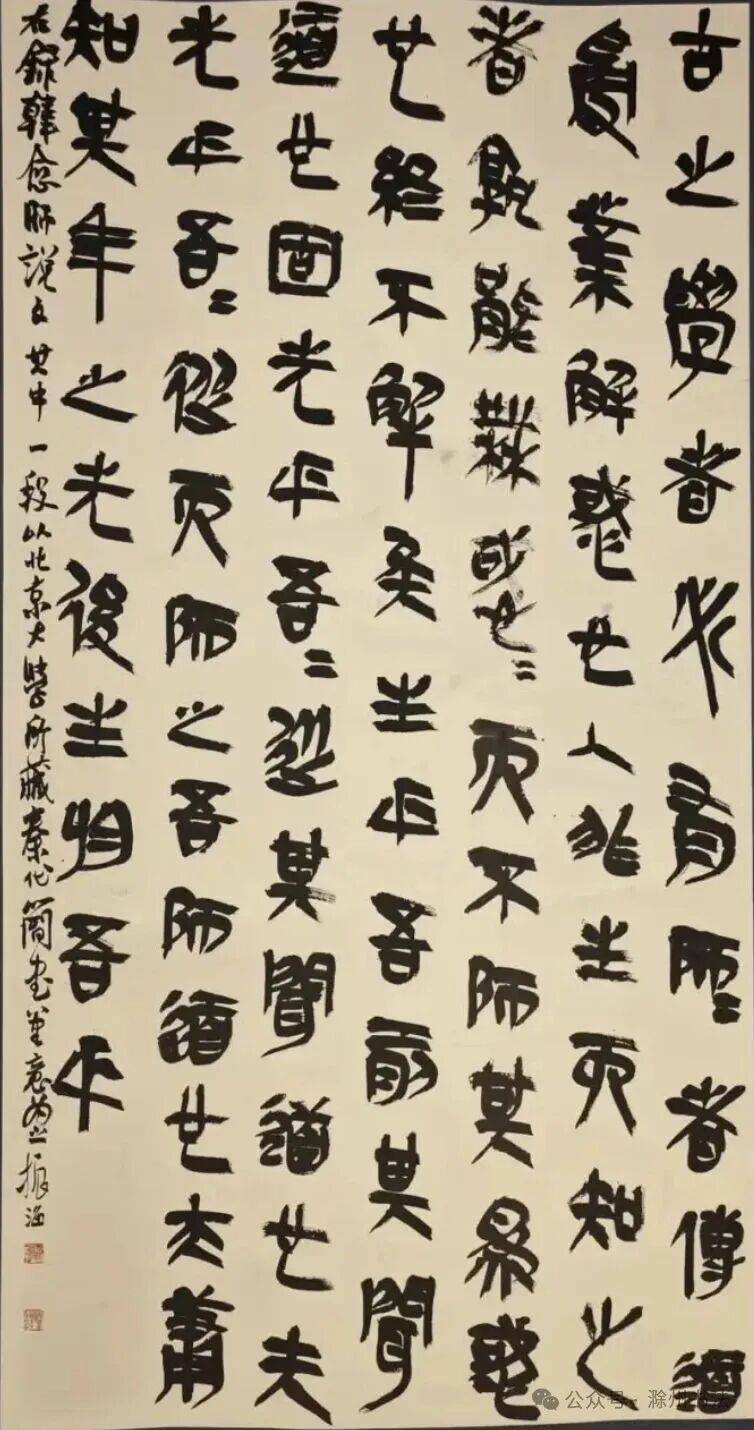 古之學者必有師=者傳道
受業解惑也人非生而知之
者孰能無惑=而不師其為惑
也終不解矣生乎吾前其聞
道也固先乎吾=從其聞道也夫
先乎吾=從而師之吾師道也夫庸
知其年之先後生於吾乎
右錄韓愈師說文其中一段以北京大學所藏秦代簡書筆意為之振海
公众号·滁州